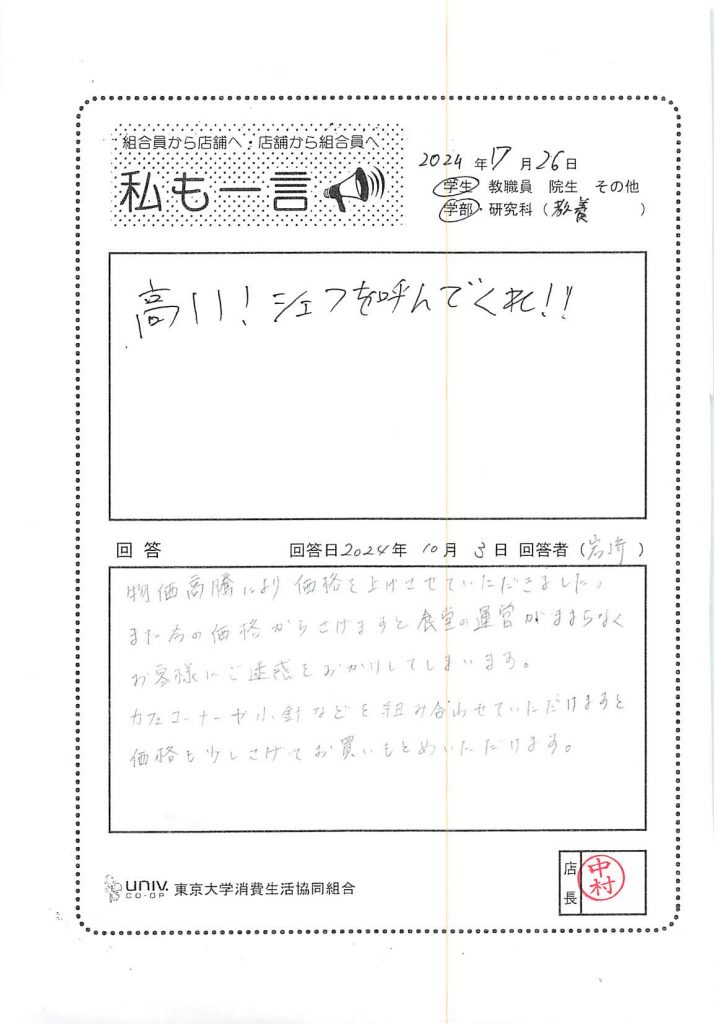 組合員から店舗へ・店舗から組合員へ
私も一言
2024年17月26日
学生 教職員 院生 その他
学部・研究科(教養)
高い!シェフを呼んでくれ!!
回答 回答日2024年10月3日 回答者(岩崎)
物価高騰により価格を上げさせていただきました。
また方の価格からさげますと食堂の運営がままらなく
お客様にご迷惑をおかけしてしまいます。
カフェコーナーや小針などを組み合わせていただけますと
価格も少しさげてお買いもとめいただけます。
UNIV. CO-OP 東京大学消費生活協同組合
店長 中村